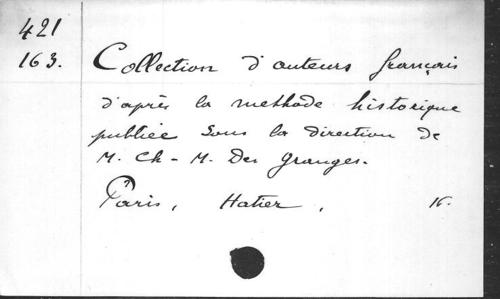 421
163.
Collection d'auteurs français
d'après la methode historique
publiée sous la direction de
M. Ch-M. Des Granges.
Paris, Hatier, 16.